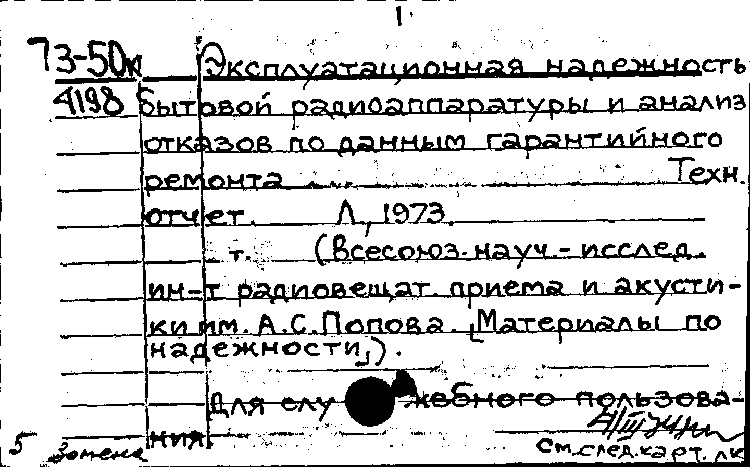 1.
73-50к Эксплуатационная надежность
4198 бытовой радиоаппаратуры и анализ
отказов по данным гарантийного
ремонта ..... Техн.
отчет. Л., 1973.
т. (Всесоюз. науч.-исслед.
ин-т радиовещат. приема и акусти-
ки им. А.С. Попова. „Материалы по
надежности").
Для служебного пользова-
ния.
5 замена
См.след.карт.